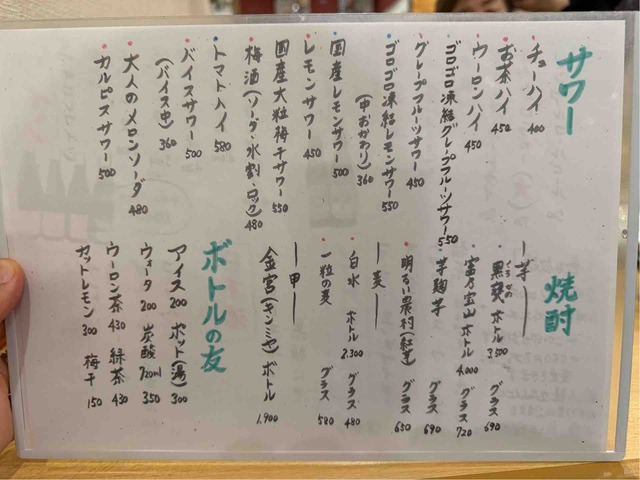 サワー
チューハイ 400
お茶ハイ 450
ウーロンハイ 450
ゴロゴロ凍結グレープフルーツサワー 550
グレープフルーツサワー 450
ゴロゴロ凍結レモンサワー 550
(中おかわり) 360
国産レモンサワー 500
レモンサワー 450
国産大粒梅干サワー 550
梅酒(ソーダ・水割・ロック) 480
トマトハイ 580
バイスサワー 500
(バイス中) 360
大人のメロンソーダ 480
カルピスサワー 500
焼酎
―芋―
黒甕 ボトル 3,500 グラス 690
くろがめ
富乃宝山 ボトル 4,000 グラス 720
芋麹芋 グラス 690
明るい農村(紅芋) グラス 650
―麦―
白水 ボトル 2,300 グラス 480
一粒の麦 グラス 580
―甲―
金宮(キンミヤ) ボトル 1,900
ボトルの友
アイス 200 ポット(湯) 300
ウォータ 200 炭酸 720ml 350
ウーロン茶 430 緑茶 430
カットレモン 300 梅干 150